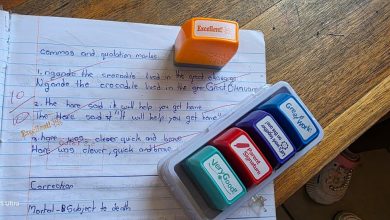 Excellent!
commas and quotation marks
1. Ngando the crocodile lived in the great okavango
Ngando the crocodile lived in the Great Okavango
10
10
2. The hare said it will help you get home
The hare said "It will help you get home"
Excellent
hare was clever quick and brave
Hare was clever, quick and brave
Correction
Mortal - Subject to death
Great Work!
Parent Signature
Very Good!
Ultra